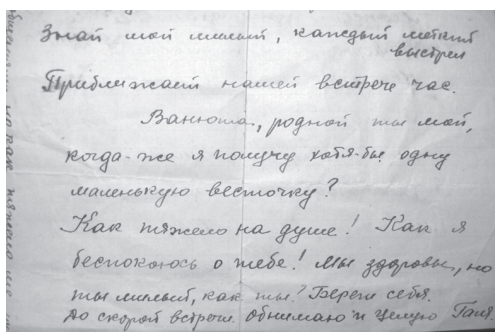 Знай мой милый, каждый меткий
выстрел
Приближает нашей встрече час.
Ванюша, родной ты мой,
когда-же я получу хотя-бы одну
маленькую весточку?
Как тяжело на душе! Как я
беспокоюсь о тебе! Мы здоровы, но
ты милый, как ты? Береги себя.
До скорой встречи. Обнимаю и целую Галя